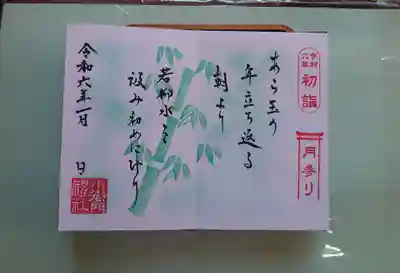 令和六年
初詣
月参り
あら玉の
年立ち返る
朝より
若柳水を
汲み初めにけり
令和六年一月　日
小御門
神社